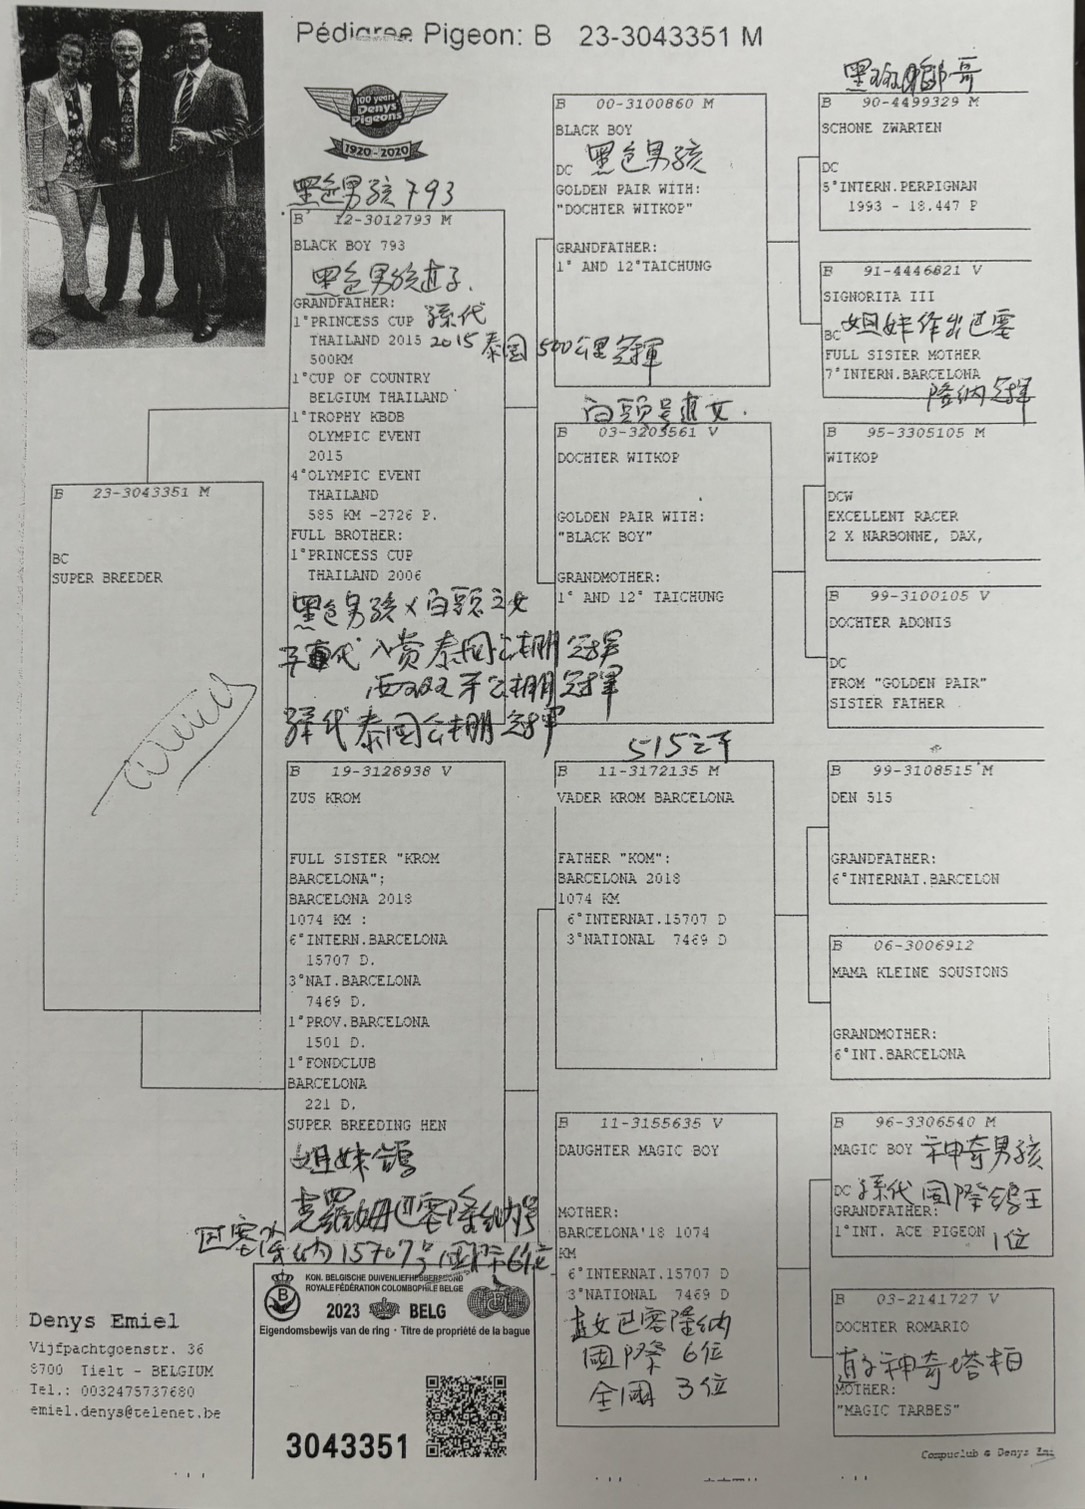 Pédigree Pigeon: B 23-3043351 M
100 years
Denys
Pigeons
1920-2020
B 23-3043351 M
BC
SUPER BREEDER
黑色男孩 793
B 12-3012793 M
BLACK BOY 793
黑色男孩直子.
GRANDFATHER:
1°PRINCESS CUP 孫代
THAILAND 2015 2015 泰国 500公里冠軍
500KM
1°CUP OF COUNTRY
BELGIUM THAILAND
1°TROPHY KBDB
OLYMPIC EVENT
2015
4°OLYMPIC EVENT
THAILAND
585 KM -2726 P.
FULL BROTHER:
1°PRINCESS CUP
THAILAND 2006
黑色男孩 x 白頭之女
子代 入赏泰国公棚冠軍
西班牙公棚冠軍
孫代泰国公棚冠軍
B 19-3128938 V
ZUS KROM
FULL SISTER "KROM
BARCELONA";
BARCELONA 2018
1074 KM :
6°INTERN.BARCELONA
15707 D.
3°NAT.BARCELONA
7469 D.
1°PROV.BARCELONA
1501 D.
1°FONDCLUB
BARCELONA
221 D.
SUPER BREEDING HEN
姐妹鴿
克羅姆巴塞隆納号
巴塞隆納15707号国际6位
B 00-3100860 M
BLACK BOY
DC 黑色男孩
GOLDEN PAIR WITH:
"DOCHTER WITKOP"
GRANDFATHER:
1° AND 12°TAICHUNG
白頭号直女.
B 03-3203561 V
DOCHTER WITKOP
GOLDEN PAIR WITH:
"BLACK BOY"
GRANDMOTHER:
1° AND 12° TAICHUNG
515之子
B 11-3172135 M
VADER KROM BARCELONA
FATHER "KOM":
BARCELONA 2018
1074 KM
6°INTERNAT.15707 D
3°NATIONAL 7469 D
B 11-3155635 V
DAUGHTER MAGIC BOY
MOTHER:
BARCELONA'18 1074
KM
6°INTERNAT.15707 D
3°NATIONAL 7469 D
直女巴塞隆納
國際 6位
全國 3位
黑 哥
B 90-4499329 M
SCHONE ZWARTEN
DC
5°INTERN.PERPIGNAN
1993 - 18.447 P
B 91-4446821 V
SIGNORITA III
BC 姐妹作出巴塞
FULL SISTER MOTHER
7°INTERN.BARCELONA
隆納冠軍
B 95-3305105 M
WITKOP
DCW
EXCELLENT RACER
2 X NARBONNE, DAX,
B 99-3100105 V
DOCHTER ADONIS
DC
FROM "GOLDEN PAIR"
SISTER FATHER
B 99-3108515 M
DEN 515
GRANDFATHER:
6°INTERNAT.BARCELON
B 06-3006912
MAMA KLEINE SOUSTONS
GRANDMOTHER:
6°INT.BARCELONA
B 96-3306540 M
MAGIC BOY 神奇男孩
DC 孫代國際鴿王
GRANDFATHER:
1°INT. ACE PIGEON 1位
B 03-2141727 V
DOCHTER ROMARIO
直子神奇塔柏
MOTHER:
"MAGIC TARBES"
Compuclub & Denys
Denys Emiel
Vijfpachtgoenstr. 36
8700 Tielt - BELGIUM
Tel.: 0032475737680
emiel.denys@telenet.be
KON. BELGISCHE DUIVENLIEFHEBBERSBOND
ROYALE FÉDÉRATION COLOMBOPHILE BELGE
B
2023 BELG
Eigendomsbewijs van de ring · Titre de propriété de la bague
3043351